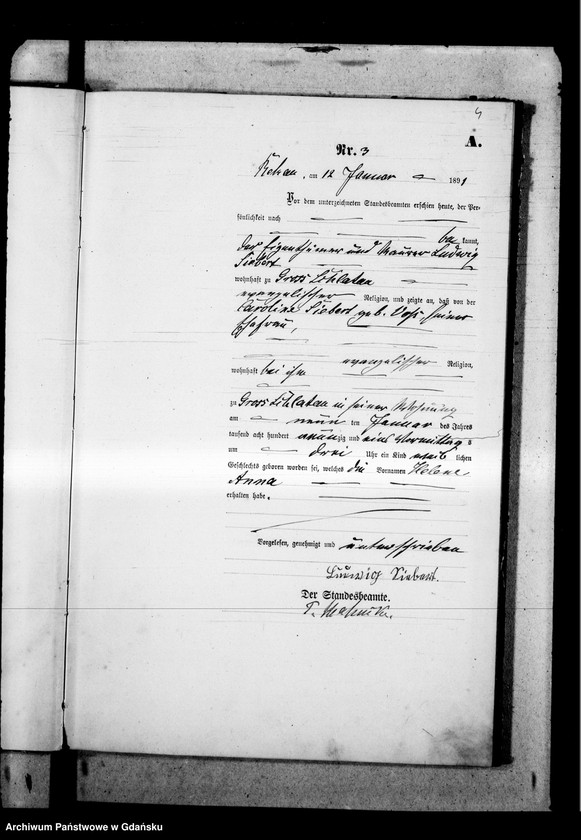 4
A.
Nr. 3
am 12 Januar 1891
Vor dem unterzeichneten Standesbeamten erschien heute, der Per-
sönlichkeit nach
be kannt,
der Eigenthümer und Maurer Ludwig
Siebert
wohnhaft zu Gross
evangelischer Religion, und zeigte an, daß von der
Caroline Siebert geb. seiner
Ehefrau,
evangelischer Religion,
wohnhaft bei ihm
zu Gross in seiner Wohnung
am neun ten Januar des Jahres
tausend acht hundert neunzig und eins Vormittags
um drei Uhr ein Kind weib lichen
Geschlechts geboren worden sei, welches die Vornamen Helene
Anna
erhalten habe.
Vorgelesen, genehmigt und unterschrieben
Ludwig Siebert.
Der Standesbeamte.
Archiwum Państwowe w Gdańsku